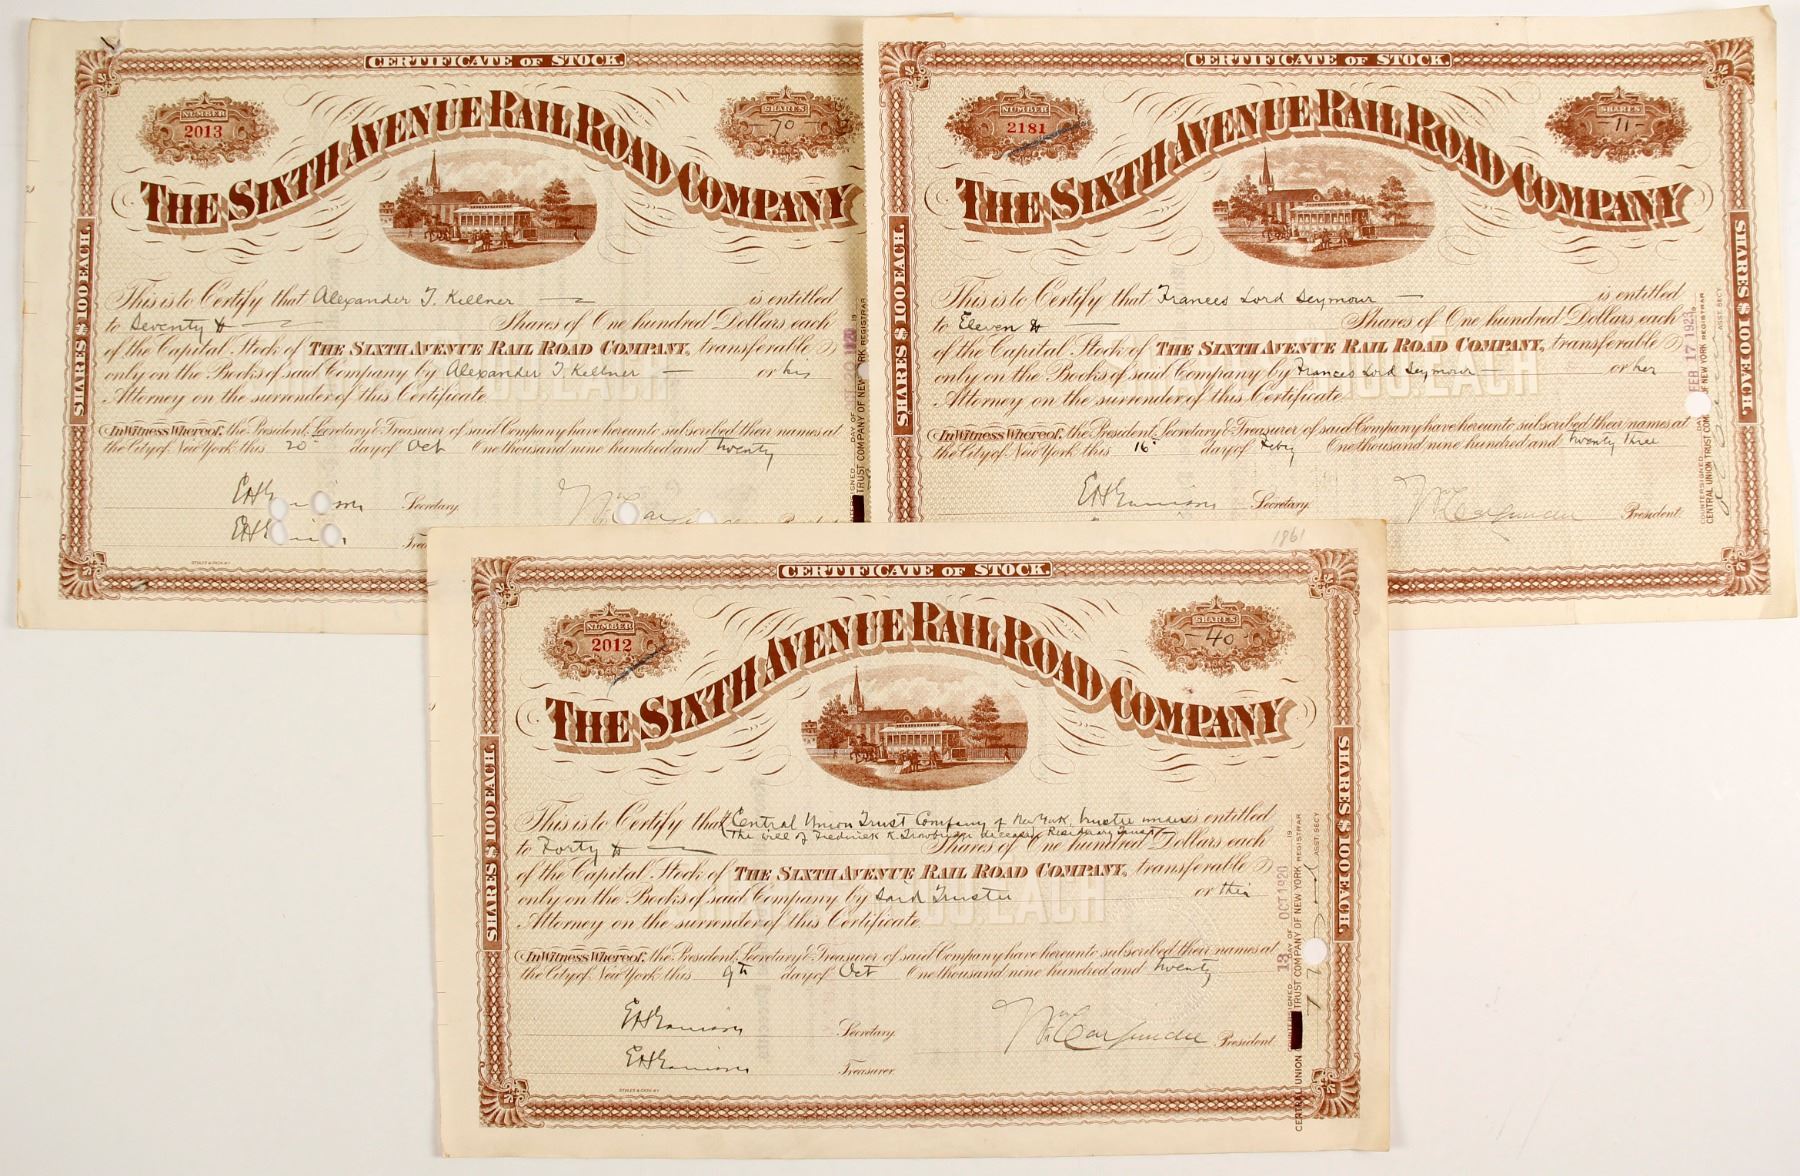 CERTIFICATE OF STOCK.
NUMBER
2013
SHARES
70
THE SIXTH AVENUE RAIL ROAD COMPANY
SHARES $100 EACH.
This is to Certify that Alexander T. Kellner is entitled
to Seventy Shares of One hundred Dollars each
of the Capital Stock of THE SIXTH AVENUE RAIL ROAD COMPANY, transferable
only on the Books of said Company by Alexander T. Kellner or his
Attorney on the surrender of this Certificate.
In Witness Whereof, the President, Secretary & Treasurer of said Company have hereunto subscribed their names at
the City of New York this 20th day of Oct One thousand nine hundred and twenty
Secretary.
TRUST COMPANY OF NEW YORK REGISTRAR
CERTIFICATE OF STOCK.
NUMBER
2181
SHARES
-11-
THE SIXTH AVENUE RAIL ROAD COMPANY
SHARES $100 EACH.
SHARES $100 EACH.
This is to Certify that Frances Lord Seymour is entitled
to Eleven Shares of One hundred Dollars each
of the Capital Stock of THE SIXTH AVENUE RAIL ROAD COMPANY, transferable
only on the Books of said Company by Frances Lord Seymour or her
Attorney on the surrender of this Certificate.
In Witness Whereof, the President, Secretary & Treasurer of said Company have hereunto subscribed their names at
the City of New York this 16th day of Feby One thousand nine hundred and twenty three
Secretary.
President.
COUNTERSIGNED
FEB 17 1923
CENTRAL UNION TRUST COM OF NEW YORK REGISTRAR
ASST. SECY
1861
CERTIFICATE OF STOCK.
NUMBER
2012
SHARES
-40-
THE SIXTH AVENUE RAIL ROAD COMPANY
SHARES $100 EACH.
SHARES $100 EACH.
This is to Certify that Central Union Trust Company of New York, trustee under is entitled
The will of Frederick K. deceased, Residuary Trust
to Forty Shares of One hundred Dollars each
of the Capital Stock of THE SIXTH AVENUE RAIL ROAD COMPANY, transferable
only on the Books of said Company by Said Trustee or their
Attorney on the surrender of this Certificate.
In Witness Whereof, the President, Secretary & Treasurer of said Company have hereunto subscribed their names at
the City of New York this 9th day of Oct One thousand nine hundred and twenty
Secretary.
President.
Treasurer.
STYLES & CASH N.Y.
13 DAY OF OCT 1920
CENTRAL UNION TRUST COMPANY OF NEW YORK REGISTRAR
ASST. SECY